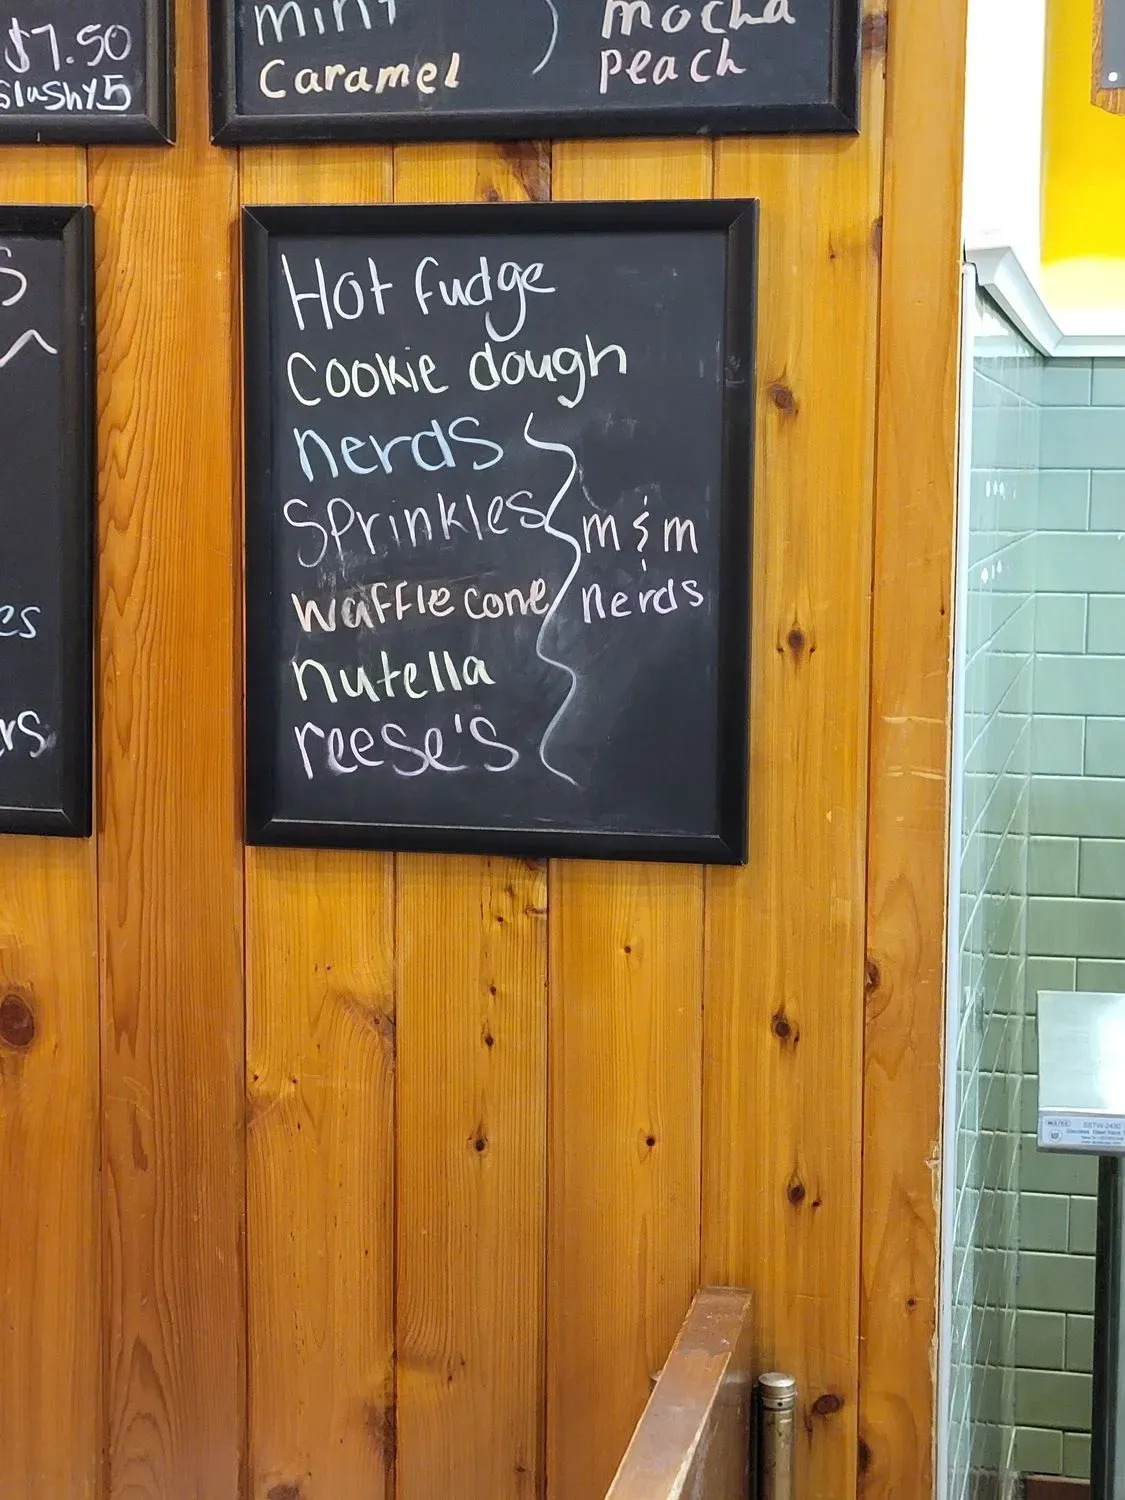 $7.50
Slushy 5
mint
Caramel
mocha
peach
S
es
rs
Hot fudge
Cookie dough
nerds
Sprinkles
waffle cone
nutella
reese's
m & m
nerds